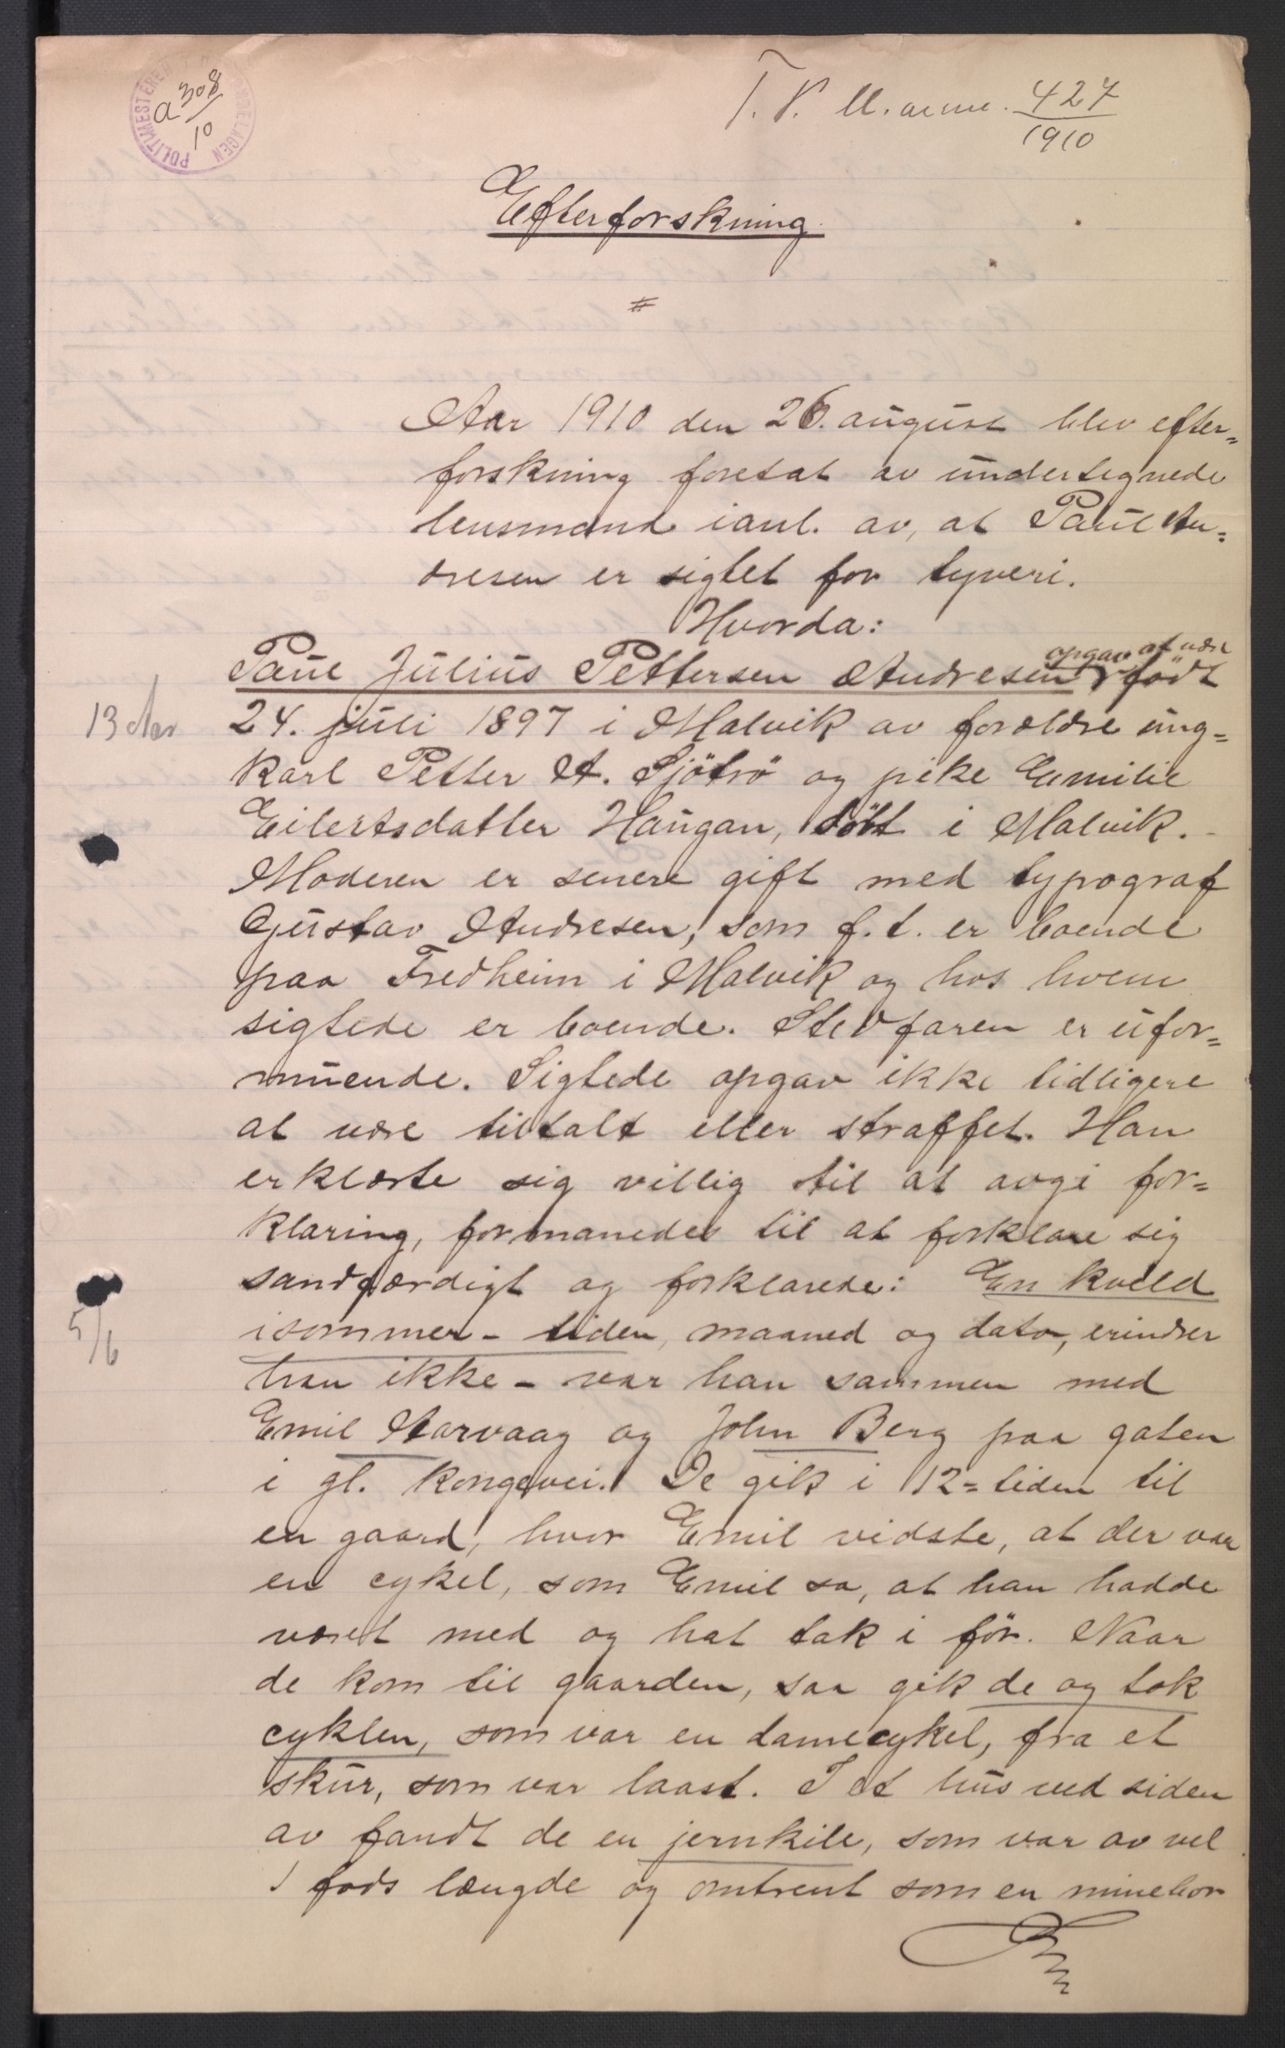 POLITIMESTEREN
a 308/10
427
1910
Efterforskning.
#
Aar 1910 den 26. august blev efter=
forskning foretat av undertegnede
lensmand i anl. av, at Paul An=
dresen er sigtet for tyveri.
Hvorda:
opgav at være
Paul Julius Pettersen Andresen født
13 Aar
24. juli 1897 i Malvik av forældre ung=
karl Petter A. Sjøtrø og pike Emilie
Eilertsdatter Haugan, døbt i Malvik.
Moderen er senere gift med typograf
Gustav Andresen, som f.t. er boende
paa Fredheim i Malvik og hos hvem
sigtede er boende. Stedfaren er ufor=
muende. Sigtede opgav ikke tidligere
at være tiltalt eller straffet. Han
erklærte sig villig til at avgi for=
klaring, formanedes til at forklare sig
sandfærdigt og forklarede: En kveld
5/6
isommer - tiden, maaned og dato, erindrer
han ikke - var han sammen med
Emil Aarvaag og John Berg paa gaten
i gl. kongevei. De gik i 12=tiden til
en gaard, hvor Emil vidste, at der var
en cykel, som Emil sa, at han hadde
været med og hat tak i før. Naar
de kom til gaarden, saa gik de og tok
cyklen, som var en damecykel, fra et
skur, som var laast. I et hus ved siden
av fandt de en jernkile, som var av vel
1 fods længde og omtrent som en minebor